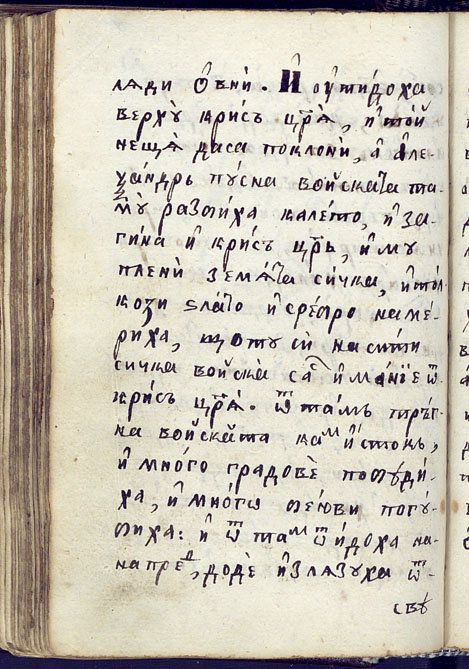 лѧди ѻ҆внѝ. И҆ ѹ҆тидоха
верхꙋ̀ крисъ цр҃ѧ̀, и҆ то́й
нещѧ̀ даса поклонѝ, а҆ а҆ле-
ѯа́ндръ пꙋсна войскаⷮа та-
мꙋ разбиха калето, и҆ за-
гина и҆ крисъ цр҃ъ, и҆ мꙋ
пленѝ землѧ́ⷮа сичка, и҆ тол-
кози ѕла́то и҆ сребро наме́-
риха, щото си насити
сичка войскà саⷭ҇ и҆мание ѿ
крисъ цр҃ѧ̀. ѿ тамъ тръг-
на войска̀та каⷨ и҆стокъ,
и҆ мно́го градовѐ побꙋди́-
ха, и҆ мно́гѡ беюви погꙋ́-
биха: и҆ ѿ таⷨ ѿидоха на-
напреⷣ, додѐ и҆злѧзꙋха ѿ-
свꙋ